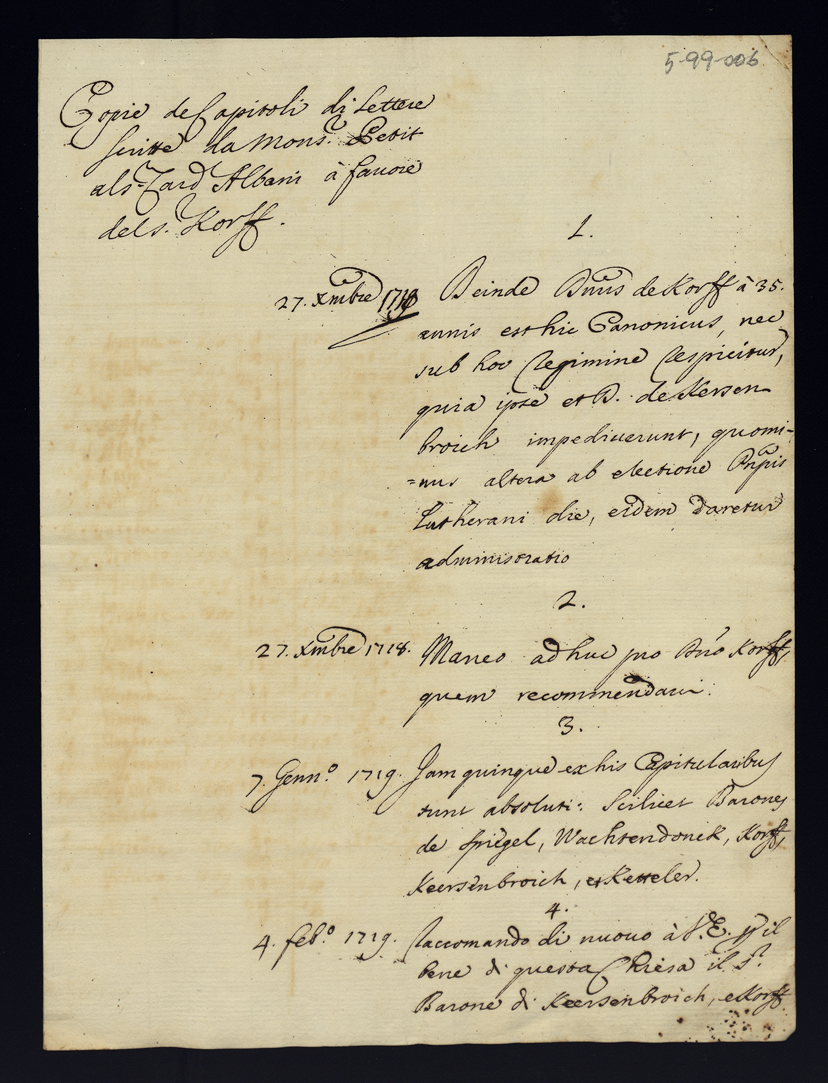 5-99-006
Copie de Capitoli di Lettere
scritte da Mons.r Petit
al s.r Card Albani à favore
del s.r Korff.
1.
27. Xmbre 1718 Deinde Dnus de Korff à 35.
annis est hic Canonicus, nec
sub hoc Regimine respicitur,
quia ipse et D. de Kersen
broich impediverunt, quomi-
=nus altera ab electione Pnpis
Lutherani die, eidem daretur
administratio
2.
27. Xmbre 1718. Maneo adhuc pro Dno Korff,
quem recommendavi.
3.
7. Genn.o 1719. Jam quinque ex his Capitularibus
sunt absoluti: Scilicet Barones
de Spiegel, Wachtendonck, Korff,
Keersenbroich, et Ketteler.
4.
4. feb.o 1719. Raccomando di nuovo à V.E. pp il
bene di questa Chiesa il s.r
Barone di Keersenbroich, e Korff.